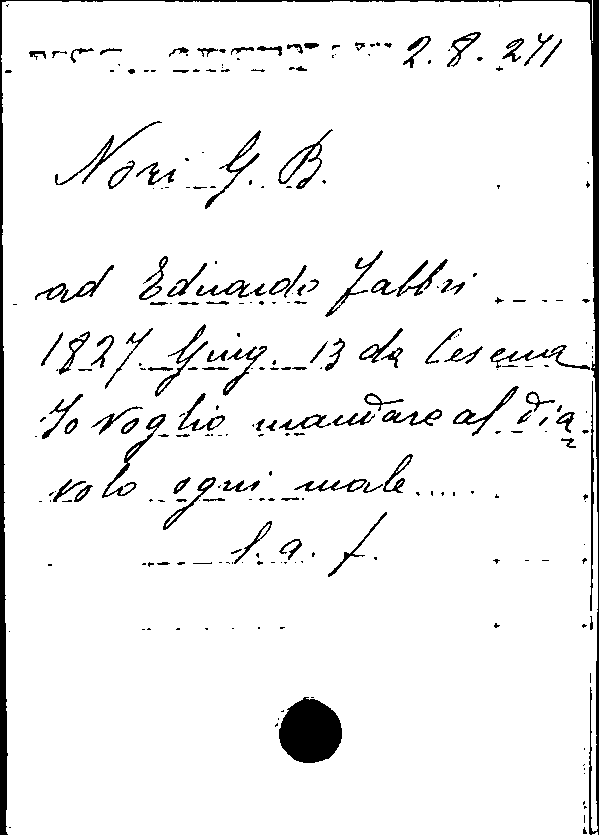 2. 8. 271
Nori G. B.
ad Eduardo Fabbri
1827 Giug. 13 da Cesena
Io voglio mandare al dia
volo ogni male.....
l. a. f.